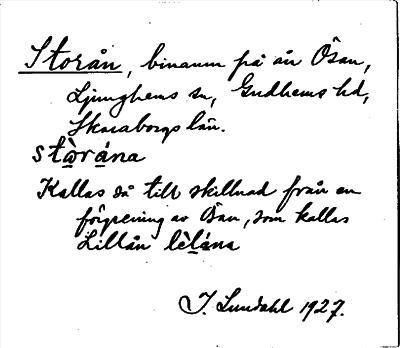 Storån, binamn på ån Ösan,
Ljunghems sn, Gudhems hd,
Skaraborgs län.
stò̱rá̱na
Kallas så till skillnad från en
förgrening av Ösan, som kallas
Lillån lèḻá̱na
I. Lundahl 1927.